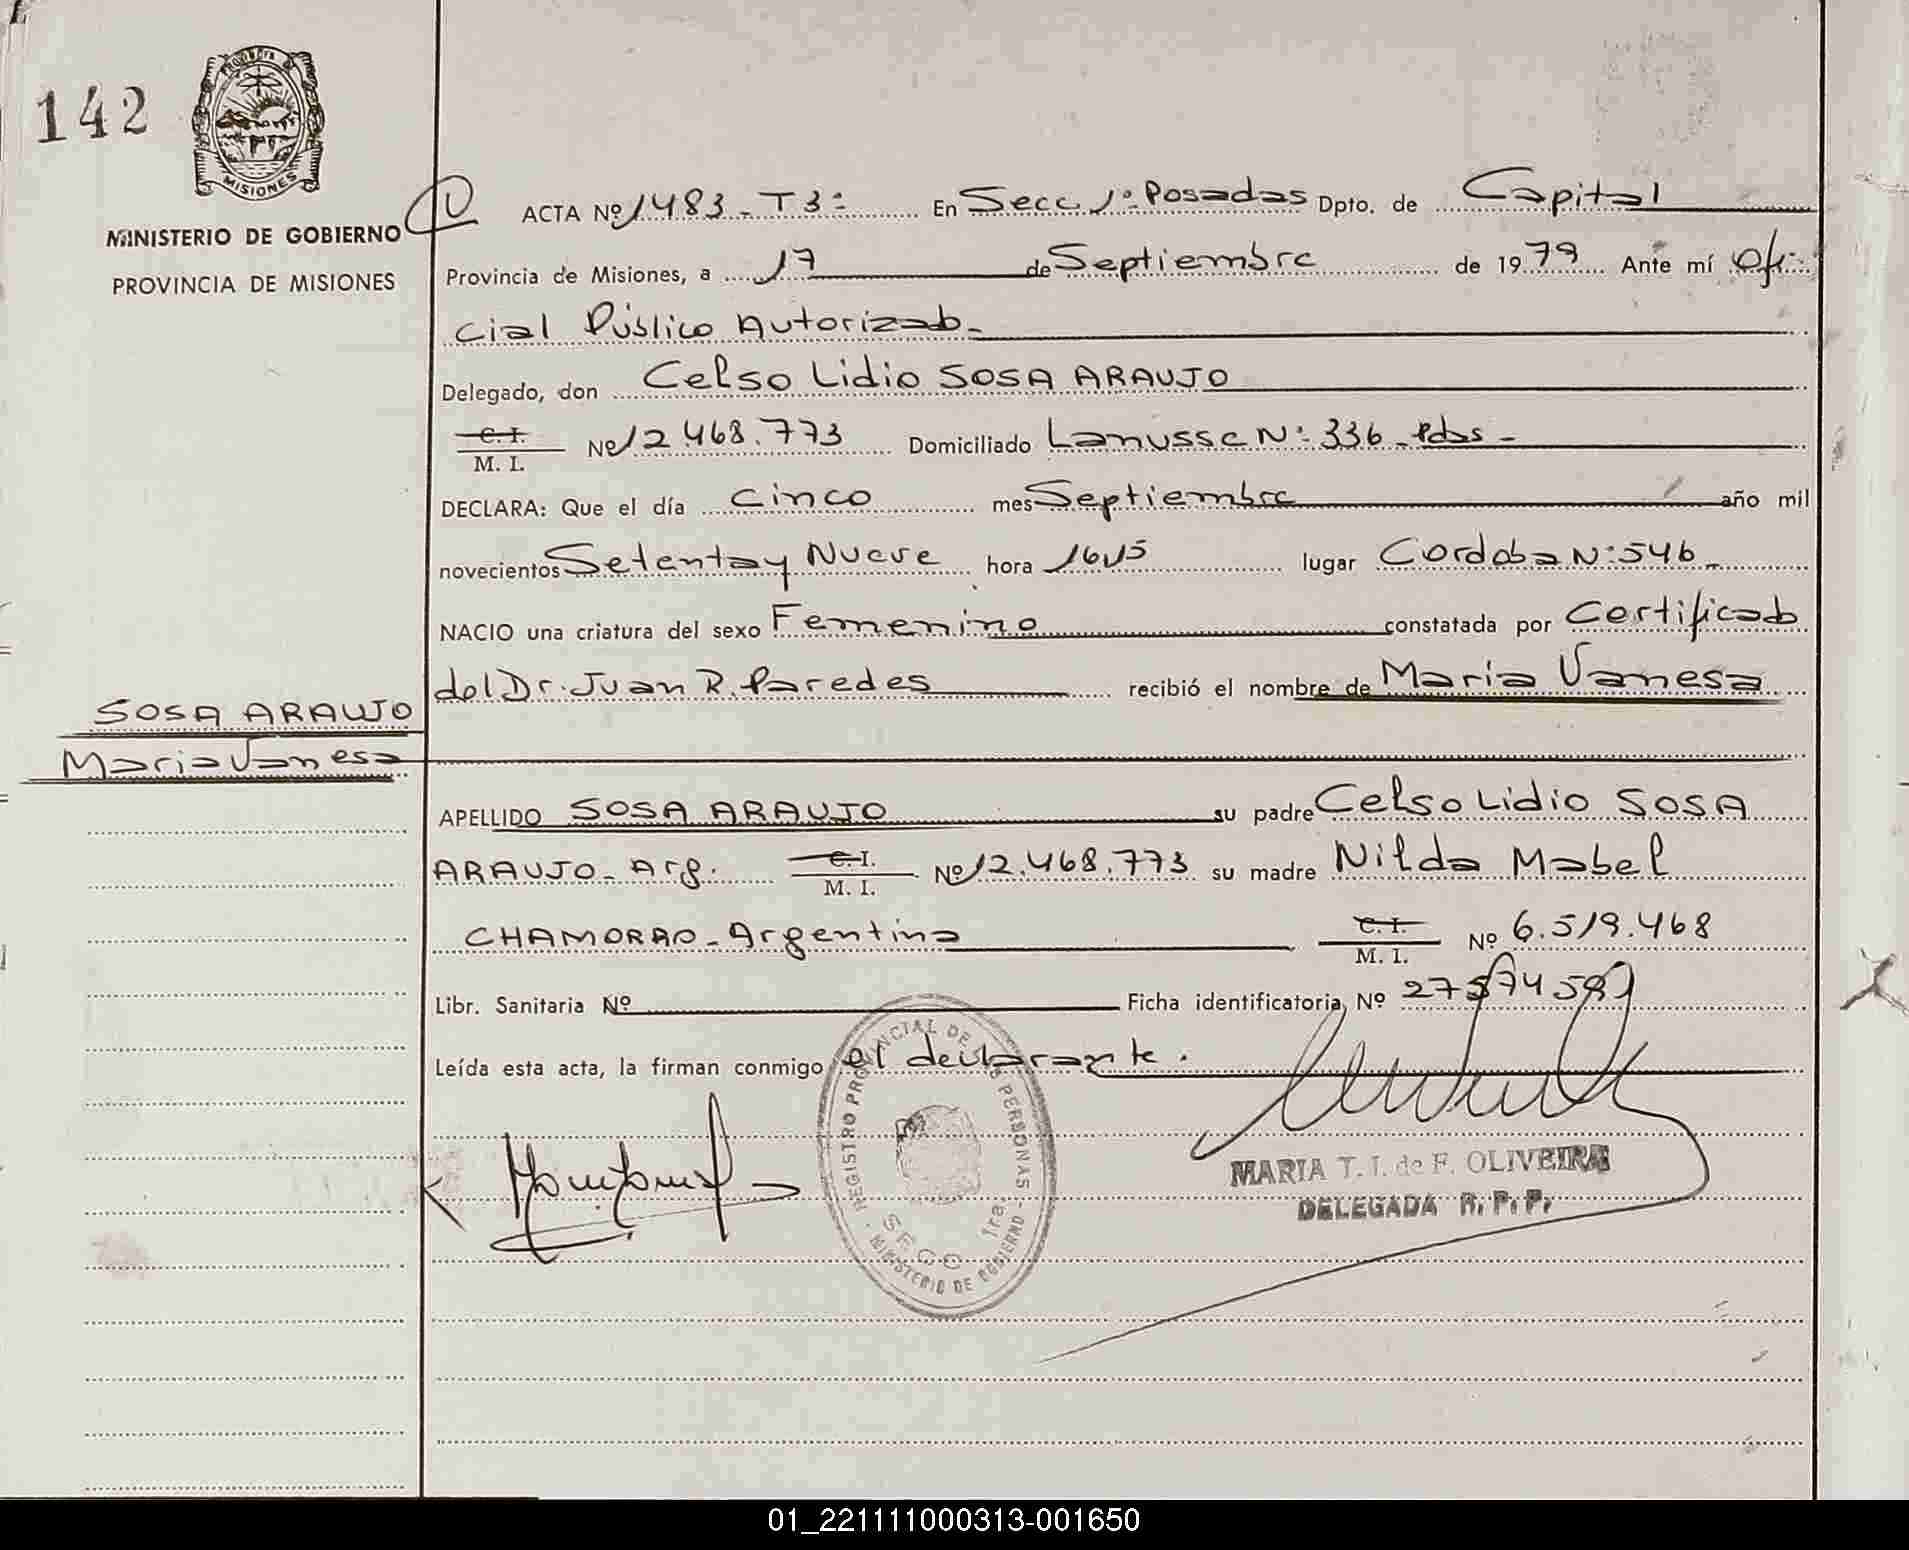 142
PROVINCIA DE
MISIONES
MINISTERIO DE GOBIERNO
PROVINCIA DE MISIONES
ACTA Nº 1483 - T3º En Secc 1º Posadas Dpto. de Capital
Provincia de Misiones, a 17 de Septiembre de 1979 Ante mí Ofi-
cial Público Autorizado -
Delegado, don Celso Lidio SOSA ARAUJO
C. I.
M. I. Nº 12.468.773 Domiciliado Lanusse Nº 336 - Pdas -
DECLARA: Que el día cinco mes Septiembre año mil
novecientos Setenta y Nueve hora 16,15 lugar Cordoba Nº 546 -
NACIO una criatura del sexo Femenino constatada por Certificado
del Dr. Juan R. Paredes recibió el nombre de Maria Vanesa
SOSA ARAUJO
Maria Vanesa
APELLIDO SOSA ARAUJO su padre Celso Lidio SOSA
ARAUJO - Arg. C. I.
M. I. Nº 12.468.773 su madre Nilda Mabel
CHAMORRO - Argentina C. I.
M. I. Nº 6.519.468
Libr. Sanitaria Nº Ficha identificatoria Nº
Leída esta acta, la firman conmigo el declarante.
REGISTRO PROVINCIAL DE LAS PERSONAS
SECC 1ra.
MINISTERIO DE GOBIERNO
MARIA T. I. de F. OLIVEIRA
DELEGADA R. P. P.
01_221111000313-001650